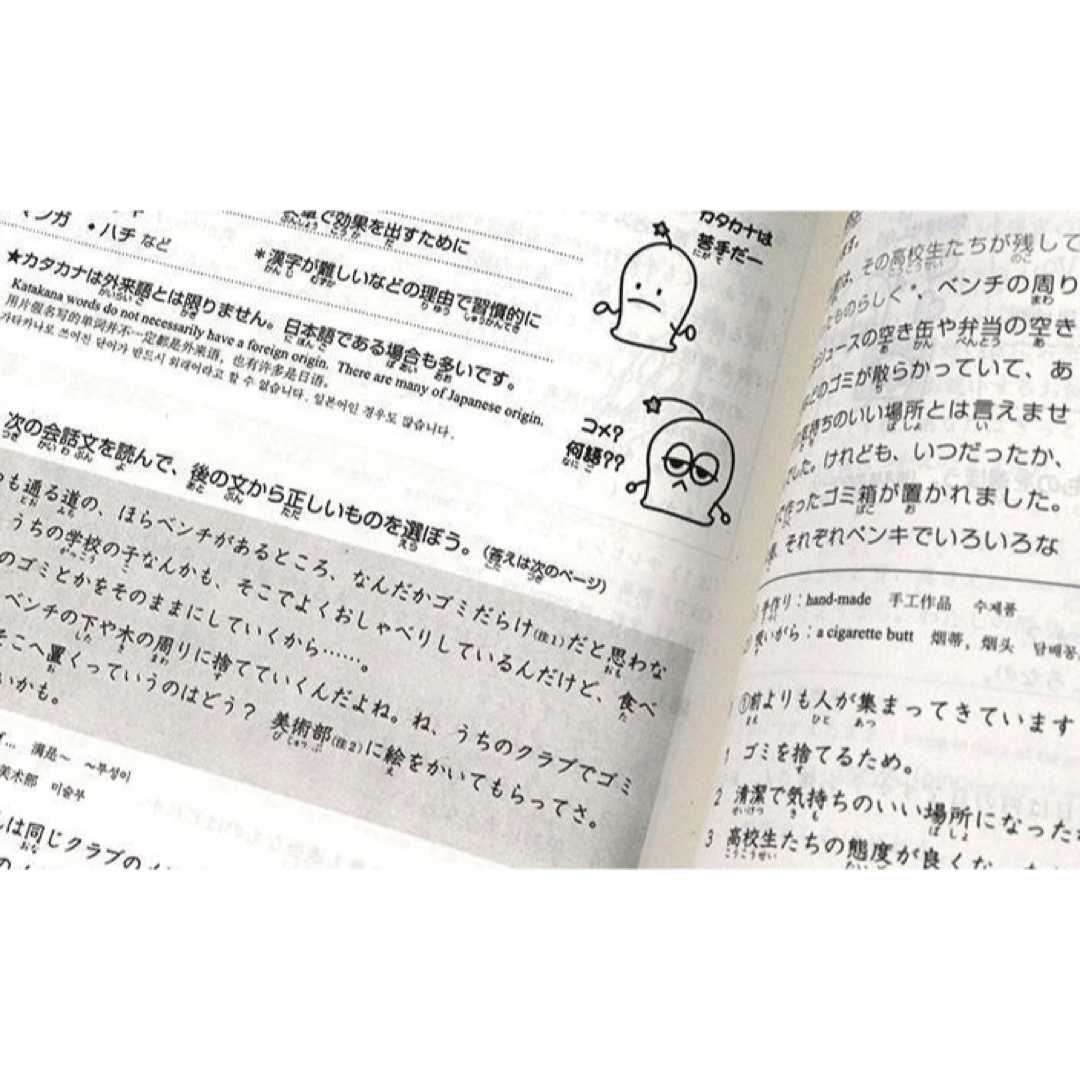 マンガ ・ハチ など
文章で効果を出すために
＊漢字が難しいなどの理由で習慣的に
★カタカナは外来語とは限りません。日本語である場合も多いです。
Katakana words do not necessarily have a foreign origin. There are many of Japanese origin.
用片假名写的单词并不一定都是外来语，也有许多是日语。
가타카나로 쓰어진 단어가 반드시 외래어라고 할 수 없습니다. 일본어인 경우도 많습니다.
カタカナは
苦手だー
コメ？
何語??
次の会話文を読んで、後の文から正しいものを選ぼう。(答えは次のページ)
も通る道の、ほらベンチがあるところ、なんだかゴミだらけ(注1)だと思わな
うちの学校の子なんかも、そこでよくおしゃべりしているんだけど、食べ
のゴミとかをそのままにしていくから……。
ベンチの下や木の周りに捨てていくんだよね。ね、うちのクラブでゴミ
そこへ置くっていうのはどう？ 美術部(注2)に絵をかいてもらってさ。
いかも。
满是～ ～투성이
美术部 미술부
は同じクラブの
その高校生たちが残して
ものらしく、ベンチの周り
ジュースの空き缶や弁当の空き
のゴミが散らかっていて、あ
持ちのいい場所とは言えませ
した。けれども、いつだったか、
作ったゴミ箱が置かれました。
それぞれペンキでいろいろな
手作り：hand-made 手工作品 수제품
いがら：a cigarette butt 烟蒂，烟头 담배꽁
①前よりも人が集まってきています
1 ゴミを捨てるため。
2 清潔で気持ちのいい場所になった
3 高校生たちの態度が良くな